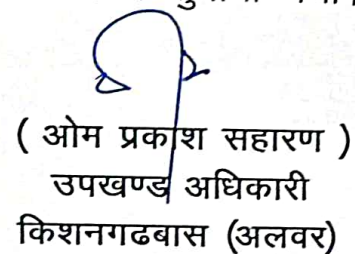 ( ओम प्रकाश सहारण )
उपखण्ड अधिकारी
किशनगढबास (अलवर)